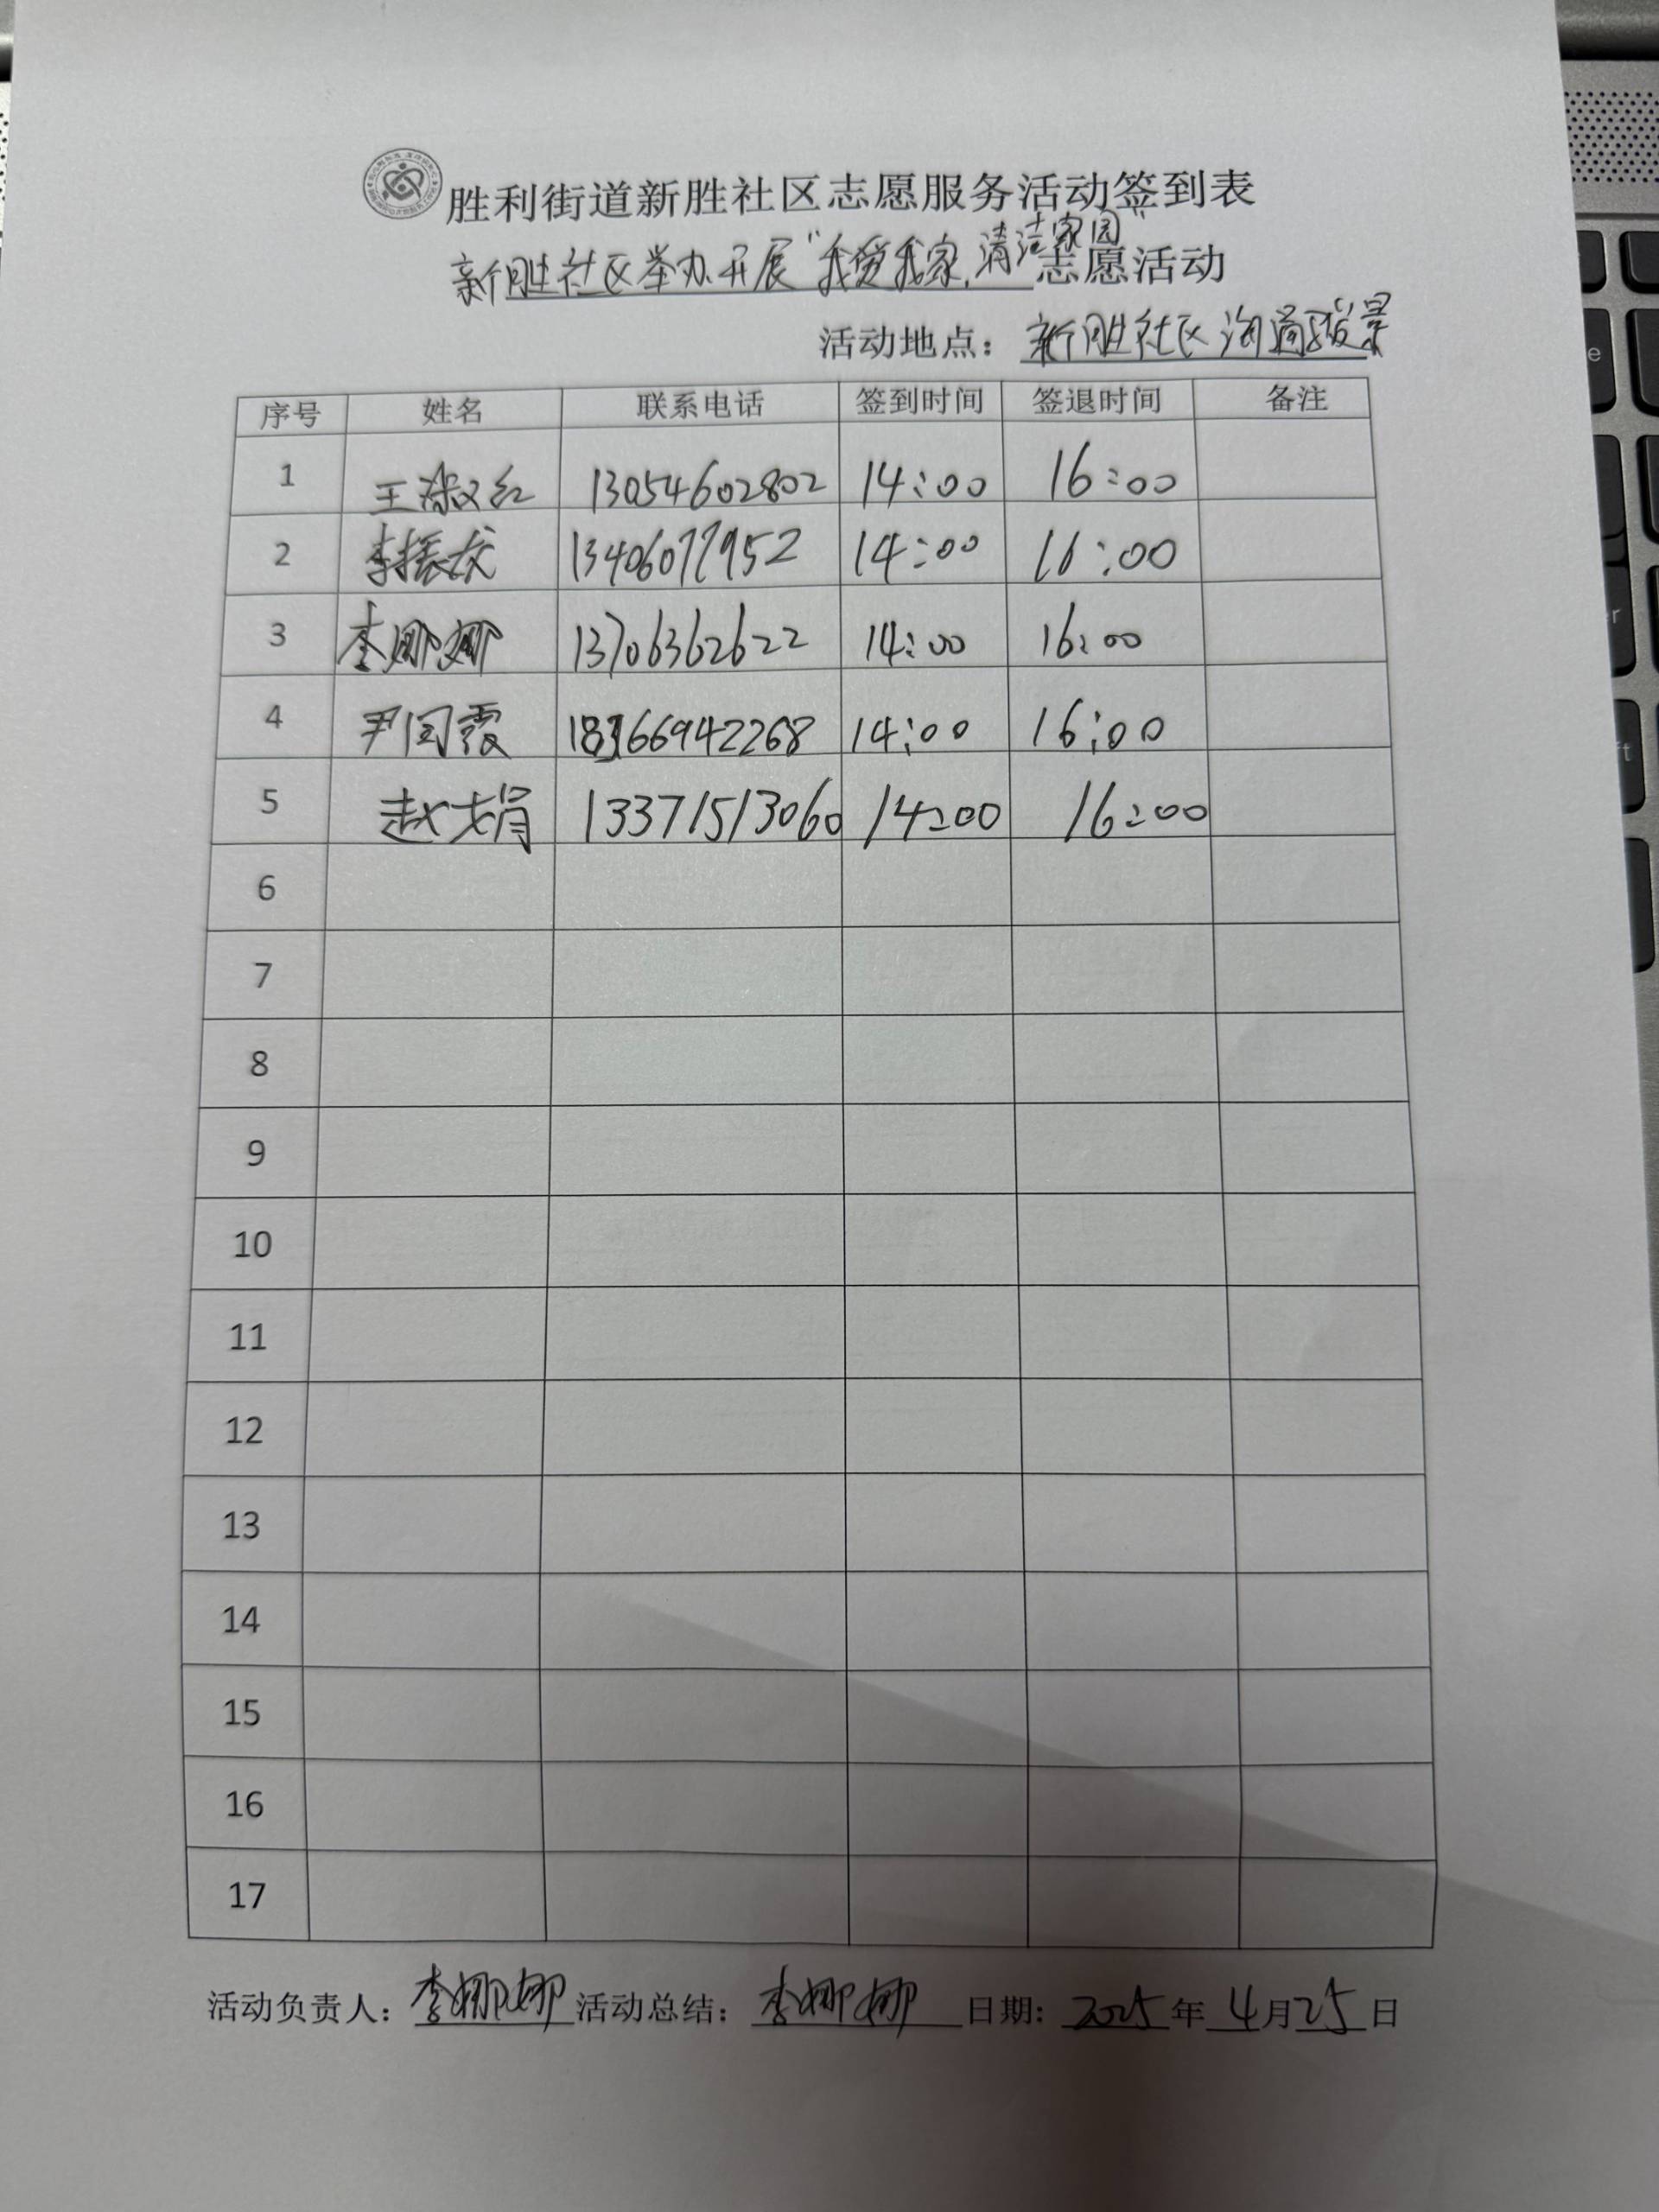 胜利街道新胜社区志愿服务活动签到表
新胜社区举办开展“我爱我家,清洁家园”志愿活动
活动地点：新胜社区沟通
序号 姓名 联系电话 签到时间 签退时间 备注
1 王淑红 13054602802 14:00 16:00
2 李振 14:00 16:00
3 李娜娜 13706362622 14:00 16:00
4 尹国霞 14:00 16:00
5 赵娟 13371513060 14:00 16:00
6
7
8
9
10
11
12
13
14
15
16
17
活动负责人：李娜娜 活动总结：李娜娜 日期：2025年4月25日